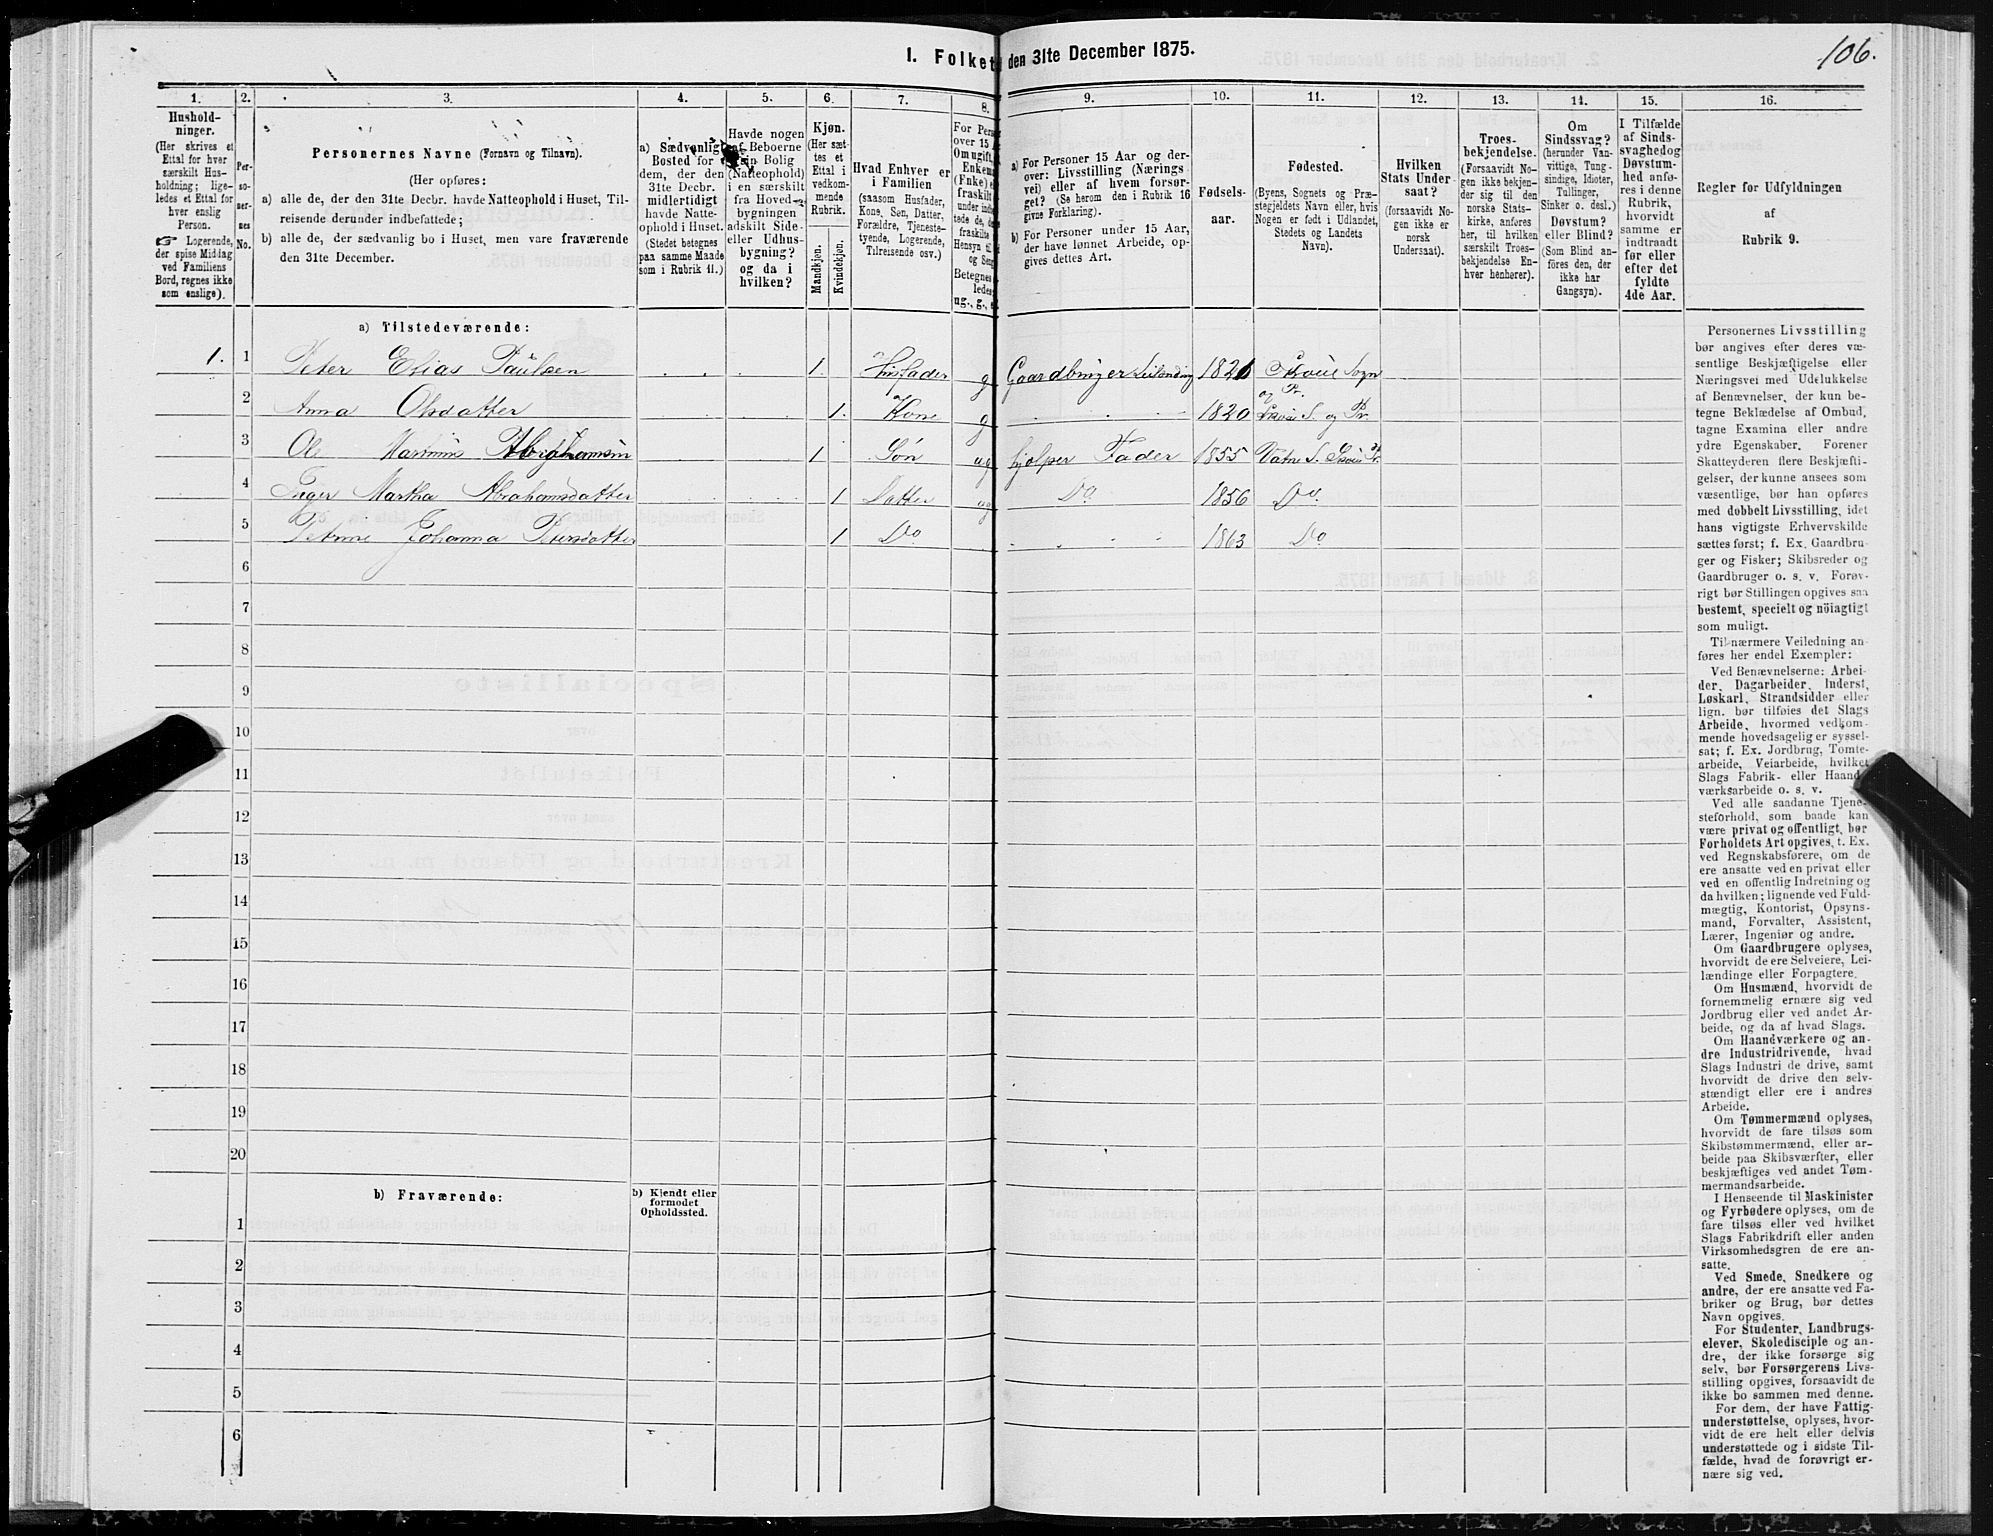 1. Folket den 31te December 1875.
106.
1. 2. 3. 4. 5. 6. 7. 8. 9. 10. 11. 12. 13. 14. 15. 16.
Hushold-
ninger.
(Her skrives et
Ettal for hver
særskilt Hus-
holdning; lige-
ledes et Ettal for
hver enslig
Person.
☞ Logerende,
der spise Middag
ved Familiens
Bord, regnes ikke
som enslige).
Per-
so-
ner-
nes
No.
Personernes Navne (Fornavn og Tilnavn).
(Her opføres:
a) alle de, der den 31te Decbr. havde Natteophold i Huset, Til-
reisende derunder indbefattede;
b) alle de, der sædvanlig bo i Huset, men vare fraværende
den 31te December.
a) Sædvanligt
Bosted for
dem, der den
31te Decbr.
midlertidigt
havde Natte-
ophold i Huset.
(Stedet betegnes
paa samme Maade
som i Rubrik 11.)
Havde nogen
af Beboerne
sin Bolig
(Natteophold)
i en særskilt
fra Hoved-
bygningen
adskilt Side-
eller Udhus-
bygning?
og da i
hvilken?
Kjøn.
(Her sæt-
tes et
Ettal i
vedkom-
mende
Rubrik.
Mandkjøn.
Kvindekjøn.
Hvad Enhver er
i Familien
(saasom Husfader,
Kone, Søn, Datter,
Forældre, Tjeneste-
tyende, Logerende,
Tilreisende osv.)
For Pers
over 15 A
Om ugift,
Enkem
(Enke) e
fraskilt
Betegnes
ledes
ug., g., e
a) For Personer 15 Aar og der-
over: Livsstilling (Nærings
vei) eller af hvem forsør-
get? (Se herom den i Rubrik 16
givne Forklaring).
b) For Personer under 15 Aar,
der have lønnet Arbeide, op-
gives dettes Art.
Fødsels-
aar.
Fødested.
(Byens, Sognets og Præ-
stegjeldets Navn eller, hvis
Nogen er født i Udlandet,
Stedets og Landets
Navn).
Hvilken
Stats Under
saat?
(forsaavidt No-
gen ikke er
norsk
Undersaat).
Troes-
bekjendelse.
(Forsaavidt No-
gen ikke bekjen-
der sig til den
norske Stats-
kirke, anføres
her, til hvilken
særskilt Troes-
bekjendelse En-
hver henhører).
Om
Sindssvag?
(herunder Van-
vittige, Tung-
sindige, Idioter,
Tullinger,
Sinker o. desl.)
Døvstum?
eller Blind?
(Som Blind an-
føres den, der
ikke har
Gangsyn).
I Tilfælde
af Sinds-
svaghed og
Døvstum-
hed anfø-
res i denne
Rubrik,
hvorvidt
samme er
indtraadt
før eller
efter det
fyldte
4de Aar.
Regler for Udfyldningen
af
Rubrik 9.
a) Tilstedeværende:
1. 1 Peter Elias Paulsen 1 Husfader g Gaardbruger Leilænding 1821 Skoie Sogn
og Pr.
2 Anna Olsdatter 1. Kone g 1820 Skoie S. og Pr.
3 Ole Martinus Abrahamsen 1 Søn ug hjelper Fader 1855 Vatne S. Skoie Pr.
4 Inger Martha Abrahamsdatter 1 Datter ug Do 1856 Do.
5 Petrine Johanna Petersdatter 1 Do 1863 Do
6
7
8
9
10
11
12
13
14
15
16
17
18
19
20
b) Fraværende:
b) Kjendt eller
formodet
Opholdssted.
1
2
3
4
5
6
Personernes Livsstilling
bør angives efter deres væ-
sentlige Beskjæftigelse eller
Næringsvei med Udelukkelse
af Benævnelser, der kun be-
tegne Beklædelse af Ombud,
tagne Examina eller andre
ydre Egenskaber. Forener
Skatteyderen flere Beskjæfti-
gelser, der kunne ansees som
væsentlige, bør han opføres
med dobbelt Livsstilling, idet
hans vigtigste Erhvervskilde
sættes først; f. Ex. Gaardbru-
ger og Fisker; Skibsreder og
Gaardbruger o. s. v. Forøv-
rigt bør Stillingen opgives saa
bestemt, specielt og nöiagtigt
som muligt.
Til nærmere Veiledning an-
føres her endel Exempler:
Ved Benævnelserne: Arbei-
der, Dagarbeider, Inderst,
Løskarl, Strandsidder eller
lign. bør tilføies det Slags
Arbeide, hvormed vedkom-
mende hovedsagelig er syssel-
sat; f. Ex. Jordbrug, Tomte-
arbeide, Veiarbeide, hvilket
Slags Fabrik- eller Haand-
værksarbeide o. s. v.
Ved alle saadanne Tjene-
steforhold, som baade kan
være privat og offentligt, bør
Forholdets Art opgives, t. Ex.
ved Regnskabsførere, om de
ere ansatte ved en privat eller
ved en offentlig Indretning og
da hvilken; lignende ved Fuld-
mægtig, Kontorist, Opsyns-
mand, Forvalter, Assistent,
Lærer, Ingeniør og andre.
Om Gaardbrugere oplyses,
hvorvidt de ere Selveiere, Lei-
lændinge eller Forpagtere.
Om Husmænd, hvorvidt de
fornemmelig ernære sig ved
Jordbrug eller ved andet Ar-
beide, og da af hvad Slags.
Om Haandværkere og an-
dre Industridrivende, hvad
Slags Industri de drive, samt
hvorvidt de drive den selv-
stændigt eller ere i andres
Arbeide.
Om Tømmermænd oplyses,
hvorvidt de fare tilsøs som
Skibstømmermænd, eller ar-
beide paa Skibsværfter, eller
beskjæftiges ved andet Tøm-
mermandsarbeide.
I Henseende til Maskinister
og Fyrbødere oplyses, om de
fare tilsøs eller ved hvilket
Slags Fabrikdrift eller anden
Virksomhedsgren de ere an-
satte.
Ved Smede, Snedkere og
andre, der ere ansatte ved Fa-
briker og Brug, bør dettes
Navn opgives.
For Studenter, Landbrugs-
elever, Skoledisciple og an-
dre, der ikke forsørge sig
selv, bør Forsørgerens Livs-
stilling opgives, forsaavidt de
ikke bo sammen med denne.
For dem, der have Fattig-
understøttelse, oplyses, hvor-
vidt de ere helt eller delvis
understøttede og i sidste Til-
fælde, hvad de forøvrigt er-
nære sig ved.